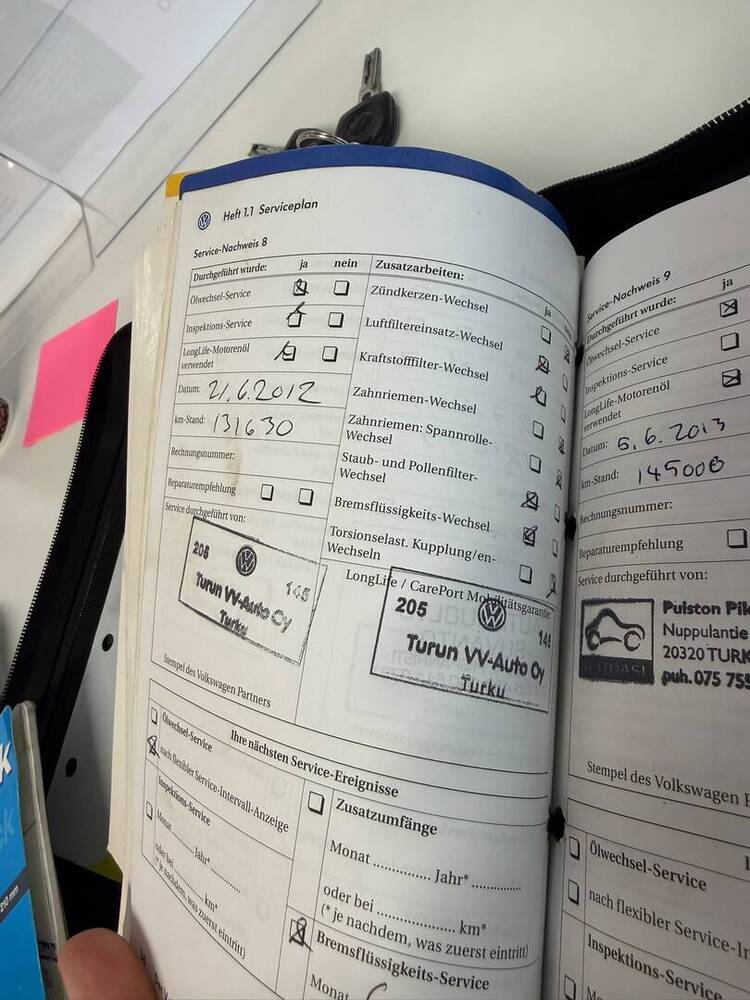 Heft 1.1 Serviceplan
Service-Nachweis 8
Durchgeführt wurde: ja nein
Ölwechsel-Service
Inspektions-Service
LongLife-Motorenöl
verwendet
Datum: 21.6.2012
km-Stand: 131630
Rechnungsnummer:
Reparaturempfehlung
Service durchgeführt von:
205 145
Turun VV-Auto Oy
Turku
Stempel des Volkswagen Partners
Zusatzarbeiten:
ja
Zündkerzen-Wechsel
Luftfiltereinsatz-Wechsel
Kraftstofffilter-Wechsel
Zahnriemen-Wechsel
Zahnriemen: Spannrolle-
Wechsel
Staub- und Pollenfilter-
Wechsel
Bremsflüssigkeits-Wechsel
Torsionselast. Kupplung/en-
Wechseln
LongLife / CarePort Mobilitätsgarantie
205 145
Turun VV-Auto Oy
Turku
Ihre nächsten Service-Ereignisse
Ölwechsel-Service
nach flexibler Service-Intervall-Anzeige
Inspektions-Service
Monat ........ Jahr* ........
oder bei ........ km*
(* je nachdem, was zuerst eintritt)
Zusatzumfänge
Monat ............. Jahr* .............
oder bei .................... km*
(* je nachdem, was zuerst eintritt)
Bremsflüssigkeits-Service
Monat
Service-Nachweis 9
Durchgeführt wurde: ja
Ölwechsel-Service
Inspektions-Service
LongLife-Motorenöl
verwendet
Datum: 6.6.2013
km-Stand: 145008
Rechnungsnummer:
Reparaturempfehlung
Service durchgeführt von:
AUTOASI
Puiston
Nuppulantie
20320 TURK
puh. 075 755
Stempel des Volkswagen
Ölwechsel-Service
nach flexibler Service-In
Inspektions-Service
210 mm